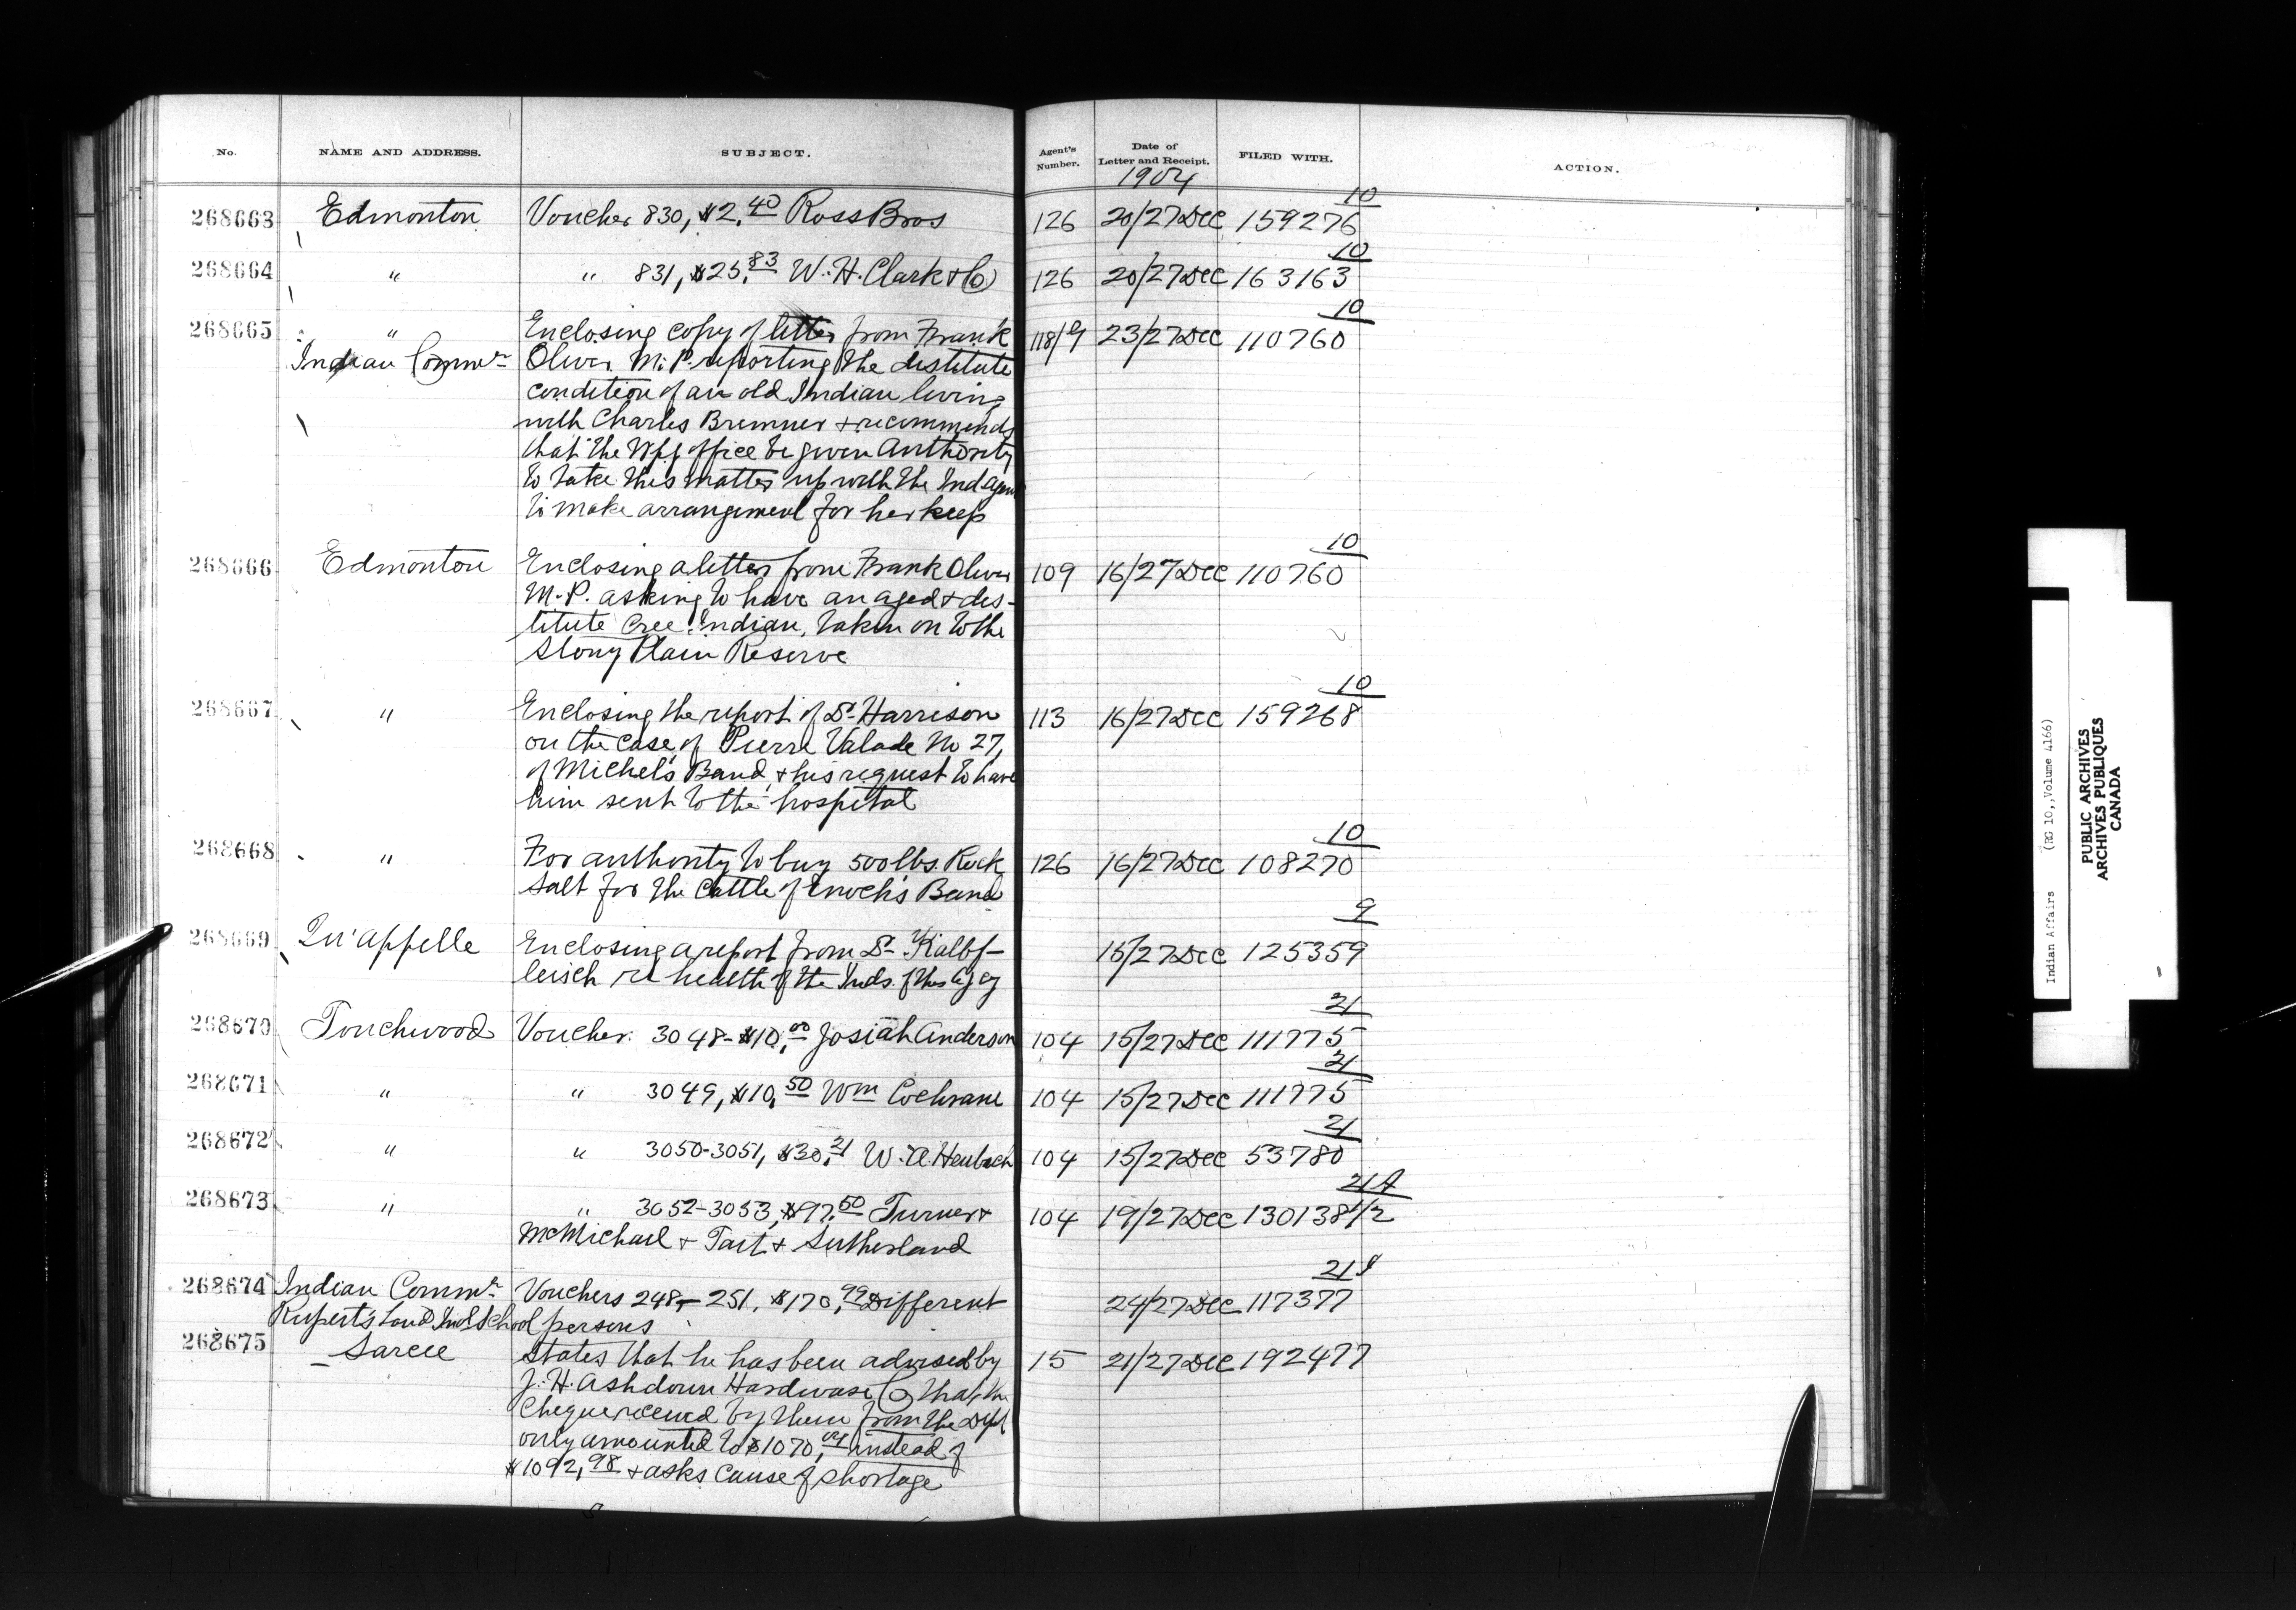 No. NAME AND ADDRESS. SUBJECT. Agent's Number. Date of Letter and Receipt. FILED WITH. ACTION.
1904
10
268663 Edmonton Voucher 830, $2.40 Ross Bros 126 20/27 Dec 159276
10
268664 " " 831, $25.83 W. H. Clark & Co 126 20/27 Dec 163163
10
268665 " Enclosing copy of letter from Frank 118/9 23/27 Dec 110760
Indian Commr Oliver M.P. reporting the destitute
condition of an old Indian living
with Charles Bremner & recommends
that the Wpg office be given authority
to take this matter up with the Ind Agent
to make arrangement for her keep
10
268666 Edmonton Enclosing a letter from Frank Oliver 109 16/27 Dec 110760
M.P. asking to have an aged & des-
titute Cree Indian, taken on to the
Stony Plain Reserve
10
268667 " Enclosing the report of Dr Harrison 113 16/27 Dec 159268
on the case of Pierre Valade No 27,
of Michel's Band, & his request to have
him sent to the hospital
10
268668 " For authority to buy 500 lbs. Rock 126 16/27 Dec 108270
Salt for the Cattle of Enoch's Band
9
268669 Qu'appelle Enclosing a report from Dr Kalbf- 15/27 Dec 125359
leisch re health of the Inds. of this Agcy
21
268670 Touchwood Voucher 3048- $10.00 Josiah Anderson 104 15/27 Dec 111775
21
268671 " " 3049, $10.50 Wm Cochrane 104 15/27 Dec 111775
21
268672 " " 3050-3051, $30.21 W. A. Heubach 104 15/27 Dec 53780
21A
268673 " " 3052-3053, $97.50 Turner & 104 19/27 Dec 130138 1/2
McMichael & Tait & Sutherland
21
268674 Indian Commr Vouchers 248-251, $170.99 Different 24/27 Dec 117377
Rupert's Land Indl School persons
268675 Sarcee States that he has been advised by 15 21/27 Dec 192477
J. H. Ashdown Hardware Co that the
Cheque received by them from the Dept
only amounted to $1070.04 instead of
$1092.98 & asks cause of shortage
Indian Affairs (RG 10, Volume 4166)
PUBLIC ARCHIVES
ARCHIVES PUBLIQUES
CANADA